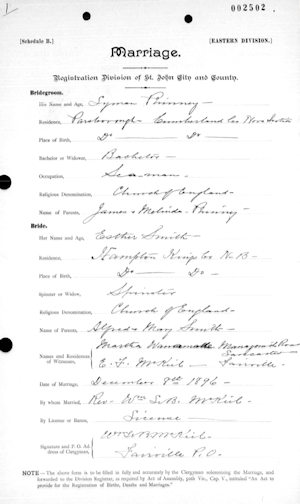 002502
[Schedule B.] [EASTERN DIVISION.]
Marriage.
Registration Division of St. John City and County.
Bridegroom.
His Name and Age, Lyman Phinney —
Residence, Parsborough — Cumberland Co Nova Scotia
Place of Birth, Do — Do —
Bachelor or Widower, Bachelor —
Occupation, Seaman —
Religious Denomination, Church of England —
Name of Parents, James & Melinda Phinney
Bride.
Her Name and Age, Esther Smith —
Residence, Hampton Kings Co N.B —
Place of Birth, Do — Do —
Spinster or Widow, Spinster
Religious Denomination, Church of England —
Name of Parents, Alfred & Mary Smith —
Names and Residences of Witnesses, Martha
Lancaster
E. F. McKiel — Fairville —
Date of Marriage, December 8th 1896 —
By whom Married, Rev — Wm LeB. McKiel —
By License or Banns, License —
Signature and P.O. Address of Clergyman, Wm LeB McKiel —
Fairville P.O. —
NOTE — The above form is to be filled in fully and accurately by the Clergyman solemnizing the Marriage, and
forwarded to the Division Registrar, as required by Act of Assembly, 50th Vic., Cap. V., intituled "An Act to
provide for the Registration of Births, Deaths and Marriages."